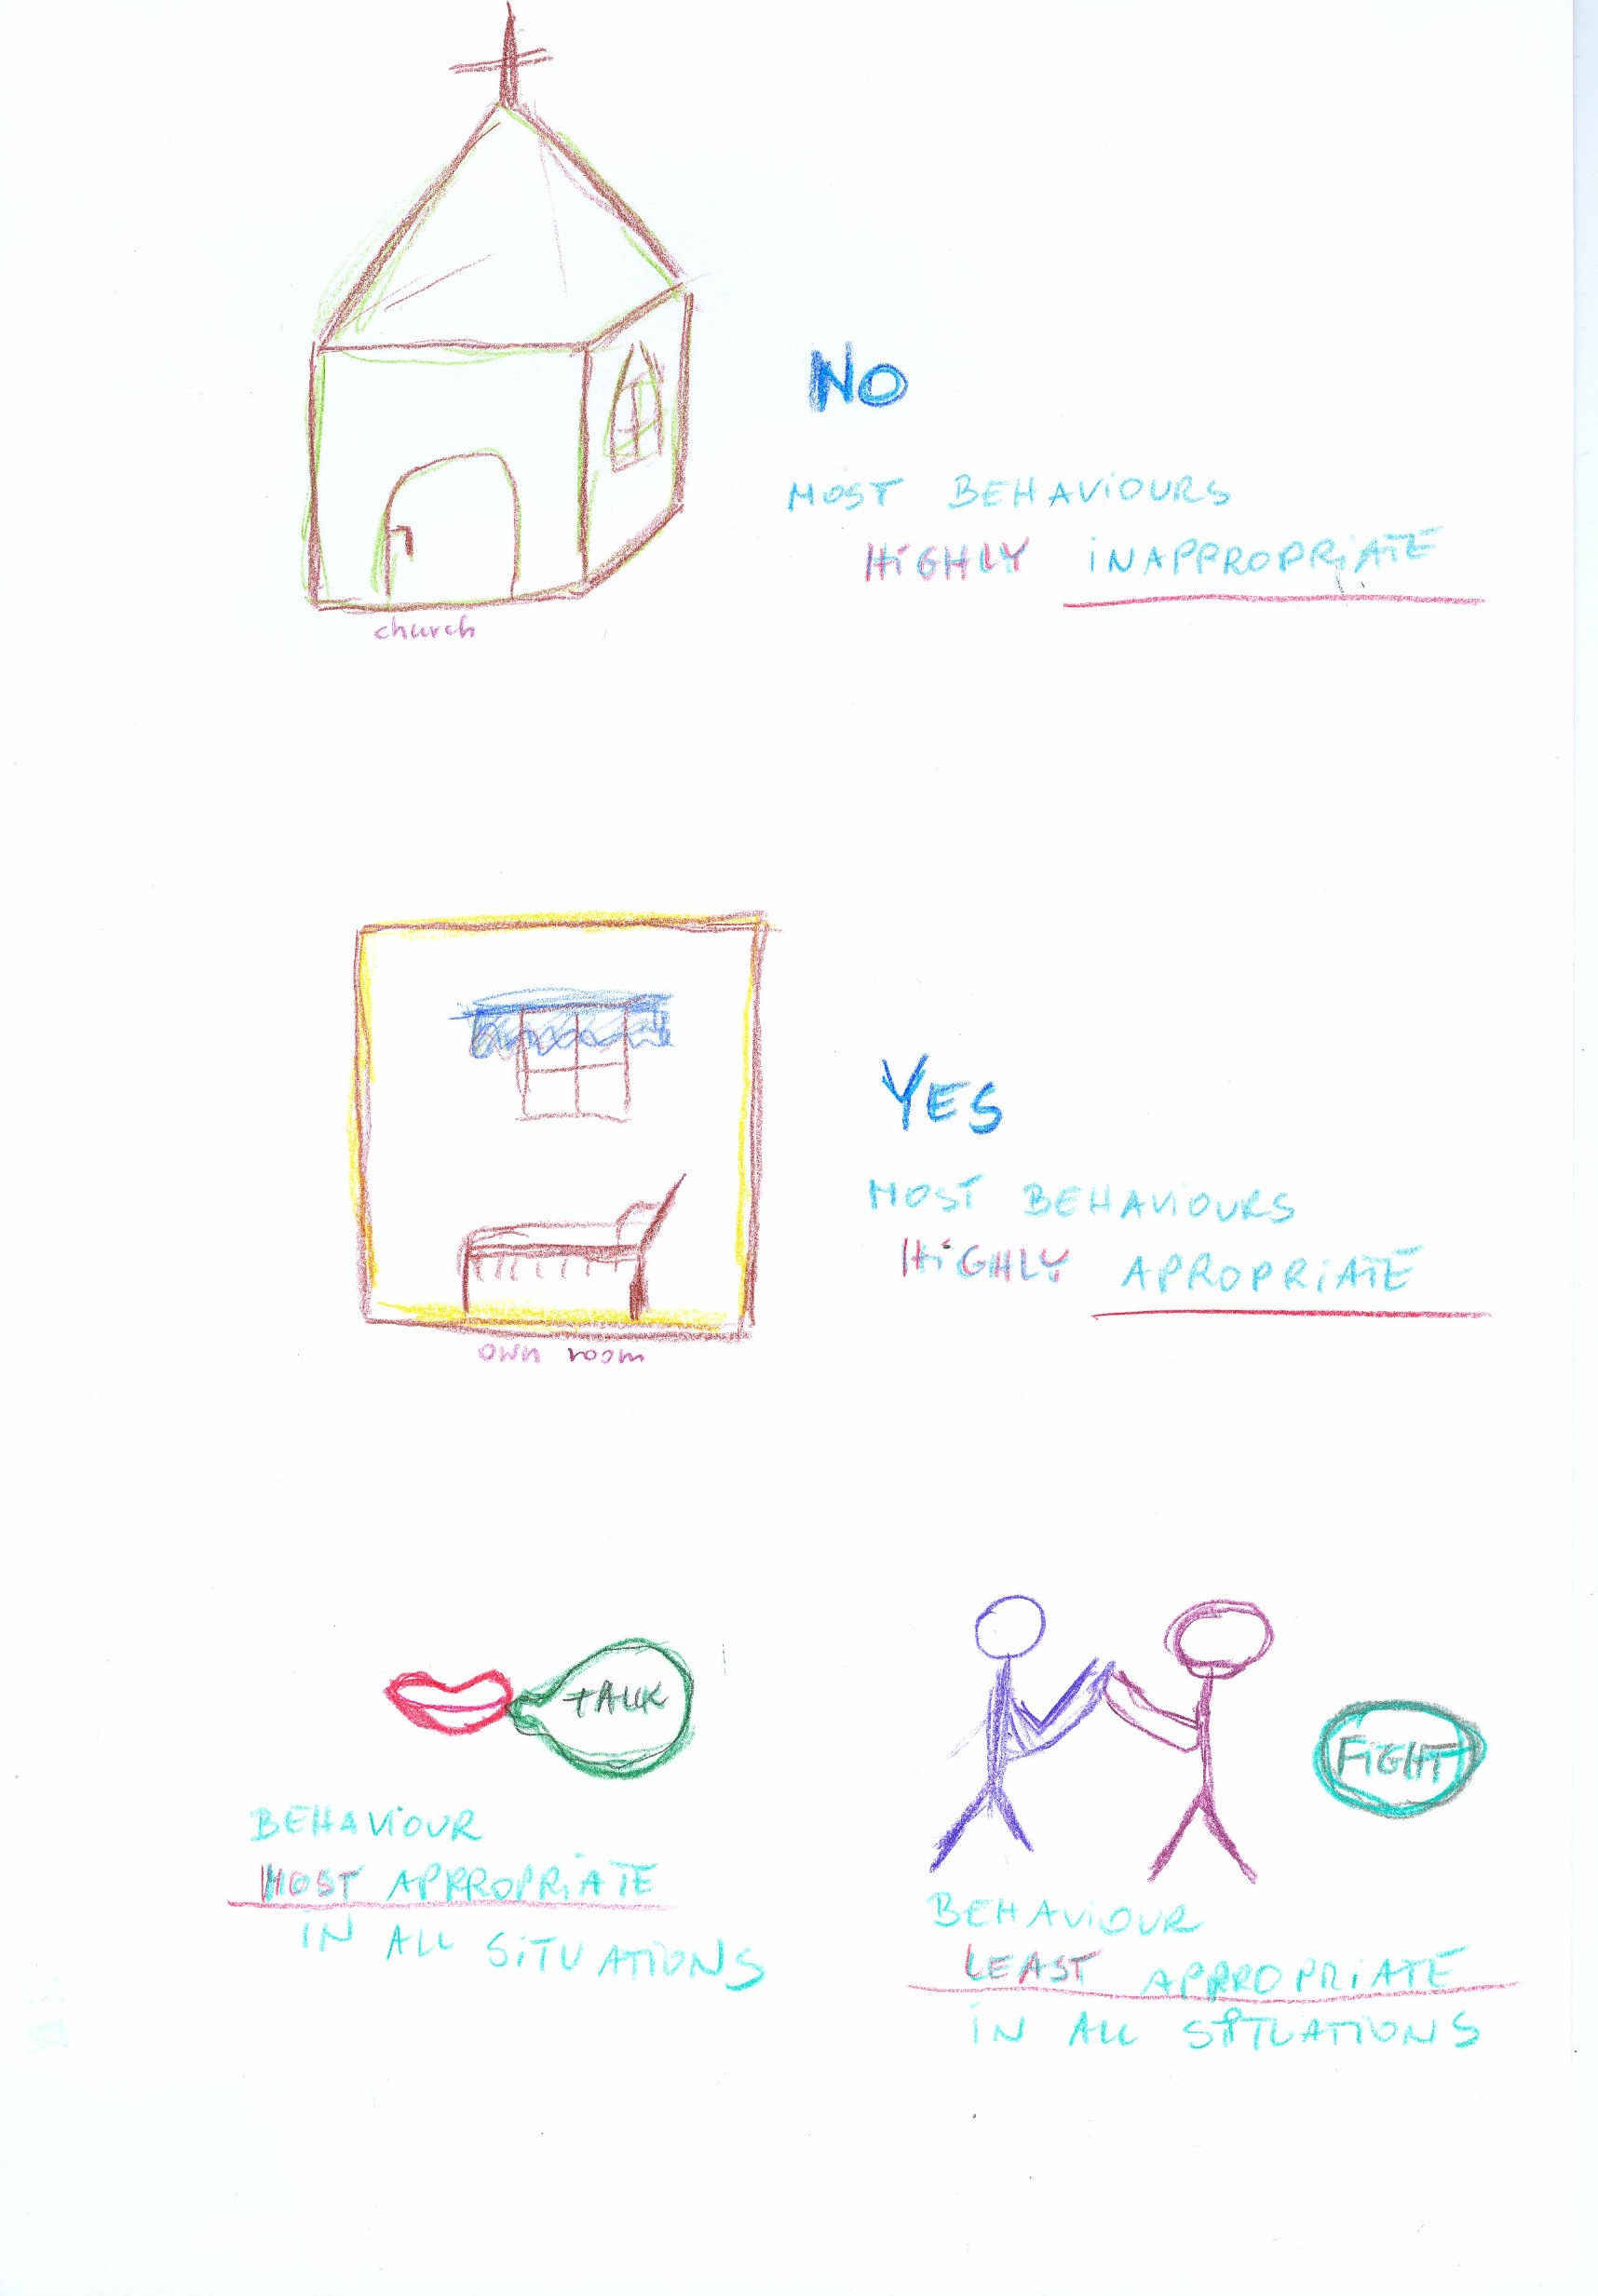 NO
MOST BEHAVIOURS
HIGHLY INAPPROPRIATE
church
YES
MOST BEHAVIOURS
HIGHLY APROPRIATE
own room
TALK
FIGHT
BEHAVIOUR
MOST APPROPRIATE
IN ALL SITUATIONS
BEHAVIOUR
LEAST APPROPRIATE
IN ALL SITUATIONS